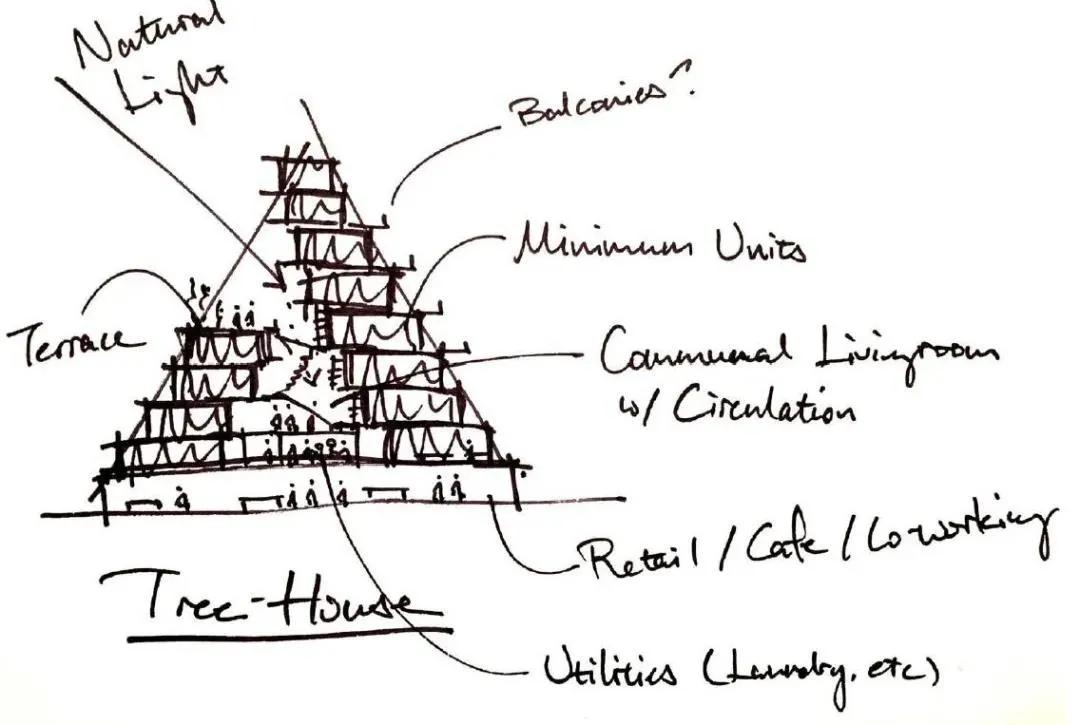 Natural
Light
Balconies?
Minimum Units
Terrace
Communal Livingroom
w/ Circulation
Retail / Cafe / Co-working
Tree-House
Utilities (Laundry, etc)